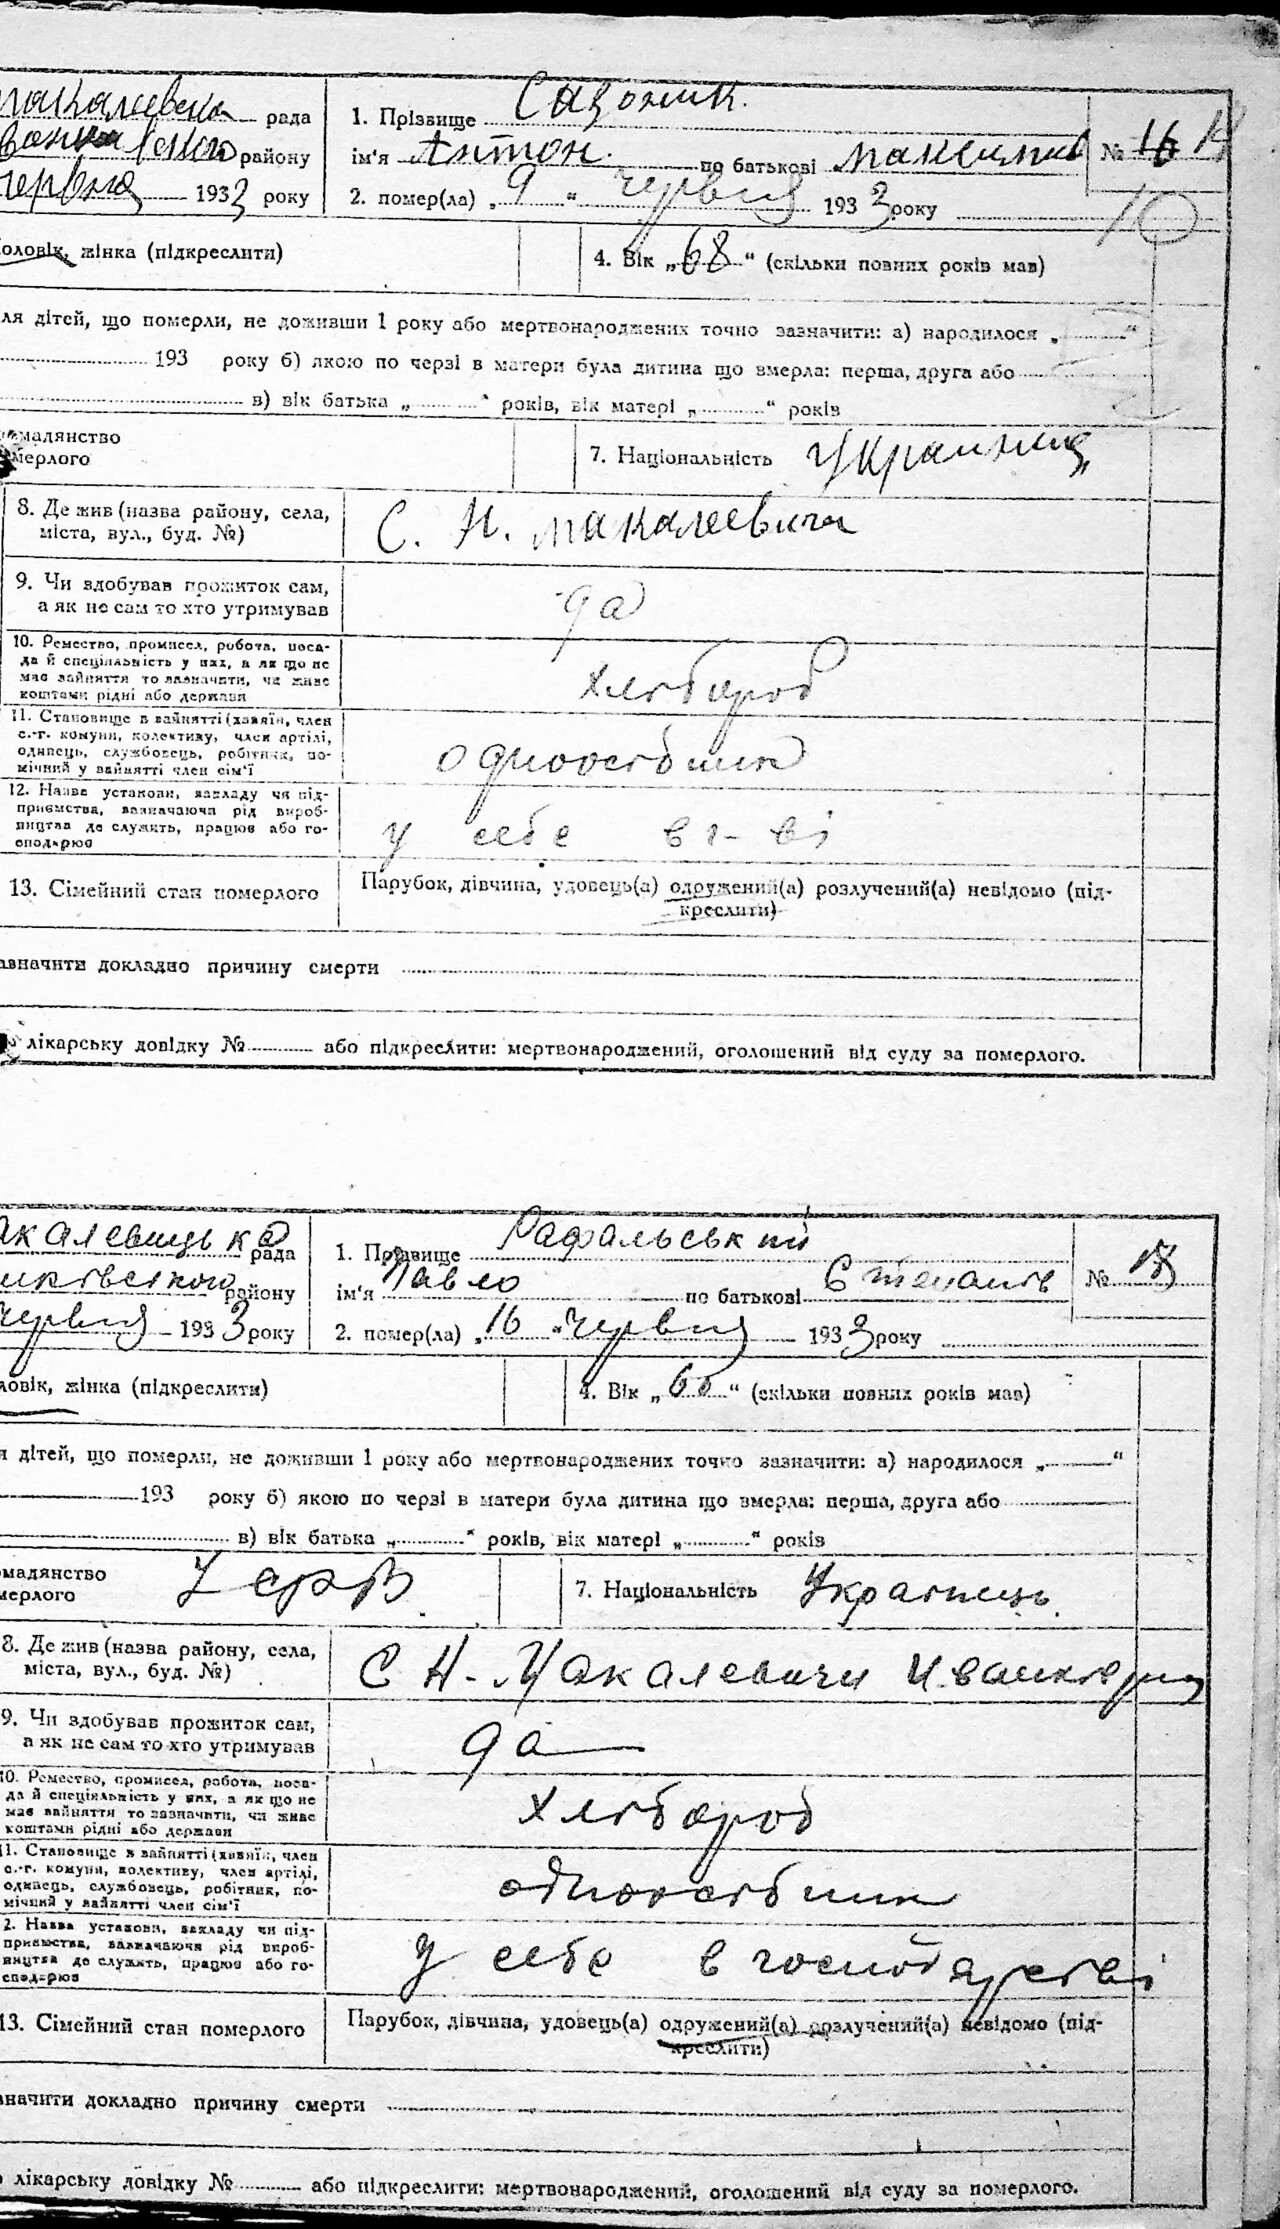 рада
району
1933 року
1. Прізвище Сазоник.
ім'я Антон по батькові Максимів
№ 16
2. помер(ла) „9“ Червня 1933 року
10
чоловік, жінка (підкреслити)
4. Вік „68“ (скільки повних років мав)
ля дітей, що померли, не доживши 1 року або мертвонароджених точно зазначити: а) народилося „ “
193 року б) якою по черзі в матери була дитина що вмерла: перша, друга або
в) вік батька „ “ років, вік матері „ “ років
омадянство
мерлого
7. Національність Украинец
8. Де жив (назва району, села,
міста, вул., буд. №)
С. Н. Макалевичи
9. Чи здобував прожиток сам,
а як не сам то хто утримував
да
10. Ремество, промисел, робота, поса-
да й спеціяльність у них, а як що не
має зайняття то зазначити, чи живе
коштами рідні або держави
хлебороб
11. Становище в зайнятті (хазяїн, член
с.-г. комуни, колективу, член артілі,
одинець, службовець, робітник, по-
мічний у зайнятті член сім'ї
одноосібник
12. Назва установи, закладу чи під-
приємства, зазначаючи рід вироб-
ництва де служить, працює або го-
сподарює
у себе в г-ві
13. Сімейний стан померлого
Парубок, дівчина, удовець(а) одружений(а) розлучений(а) невідомо (під-
креслити)
азначити докладно причину смерти
лікарську довідку № або підкреслити: мертвонароджений, оголошений від суду за померлого.
акалевицька рада
району
Червня 1933 року
1. Прізвище Рафальський
ім'я Павло по батькові Степанів
№
2. помер(ла) „16“ Червня 1933 року
ловік, жінка (підкреслити)
4. Вік „60“ (скільки повних років мав)
я дітей, що померли, не доживши 1 року або мертвонароджених точно зазначити: а) народилося „ “
193 року б) якою по черзі в матери була дитина що вмерла: перша, друга або
в) вік батька „ “ років, вік матері „ “ років
омадянство
мерлого
УСРР
7. Національність Українець
8. Де жив (назва району, села,
міста, вул., буд. №)
С Н-Макалевичи
9. Чи здобував прожиток сам,
а як не сам то хто утримував
да
10. Ремество, промисел, робота, поса-
да й спеціяльність у них, а як що не
має зайняття то зазначити, чи живе
коштами рідні або держави
хлебороб
11. Становище в зайнятті (хазяїн, член
с.-г. комуни, колективу, член артілі,
одинець, службовець, робітник, по-
мічний у зайнятті член сім'ї
одноосібник
2. Назва установи, закладу чи під-
приємства, зазначаючи рід вироб-
ництва де служить, працює або го-
сподарює
у себе в господарстві
13. Сімейний стан померлого
Парубок, дівчина, удовець(а) одружений(а) розлучений(а) невідомо (під-
креслити)
значити докладно причину смерти
лікарську довідку № або підкреслити: мертвонароджений, оголошений від суду за померлого.